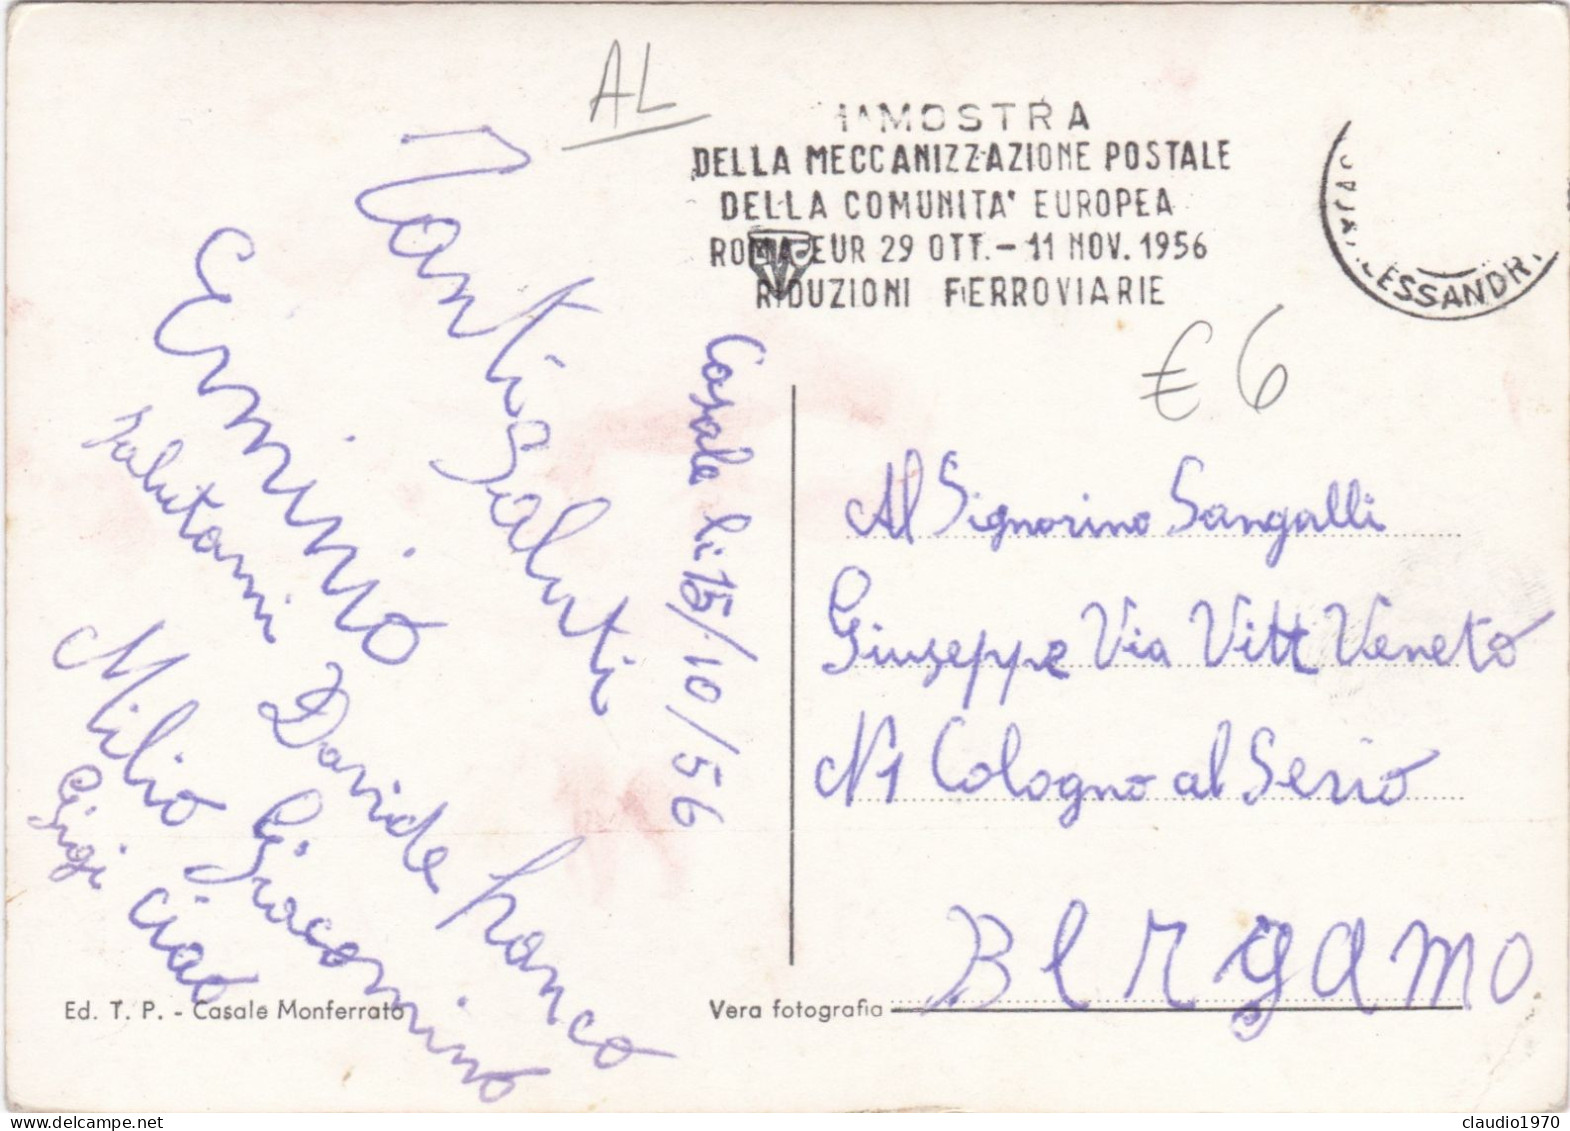 AL
1ª MOSTRA
DELLA MECCANIZZAZIONE POSTALE
DELLA COMUNITA' EUROPEA
ROMA-EUR 29 OTT. - 11 NOV. 1956
RIDUZIONI FERROVIARIE
€ 6
Tanti Saluti
Erminio
Salutami Davide Franco
Milio Giacomino
Gigi ciao
Casale li 15/10/56
Al Signorino Sangalli
Giuseppe Via Vitt Veneto
N1 Cologno al Serio
Bergamo
Ed. T. P. - Casale Monferrato
Vera fotografia
claudio1970